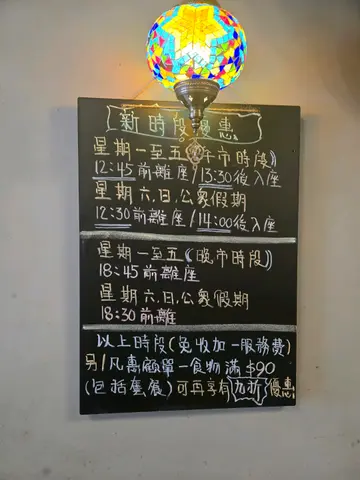 新時段優惠
星期一至五(午市時段)
12:45前離座/13:30後入座
星期六.日.公眾假期
12:30前離座/14:00後入座
星期一至五(晚市時段)
18:45前離座
星期六.日.公眾假期
18:30前離
以上時段(免收加一服務費)
另/凡惠顧單一食物滿$90
(包括套餐)可再享有九折優惠